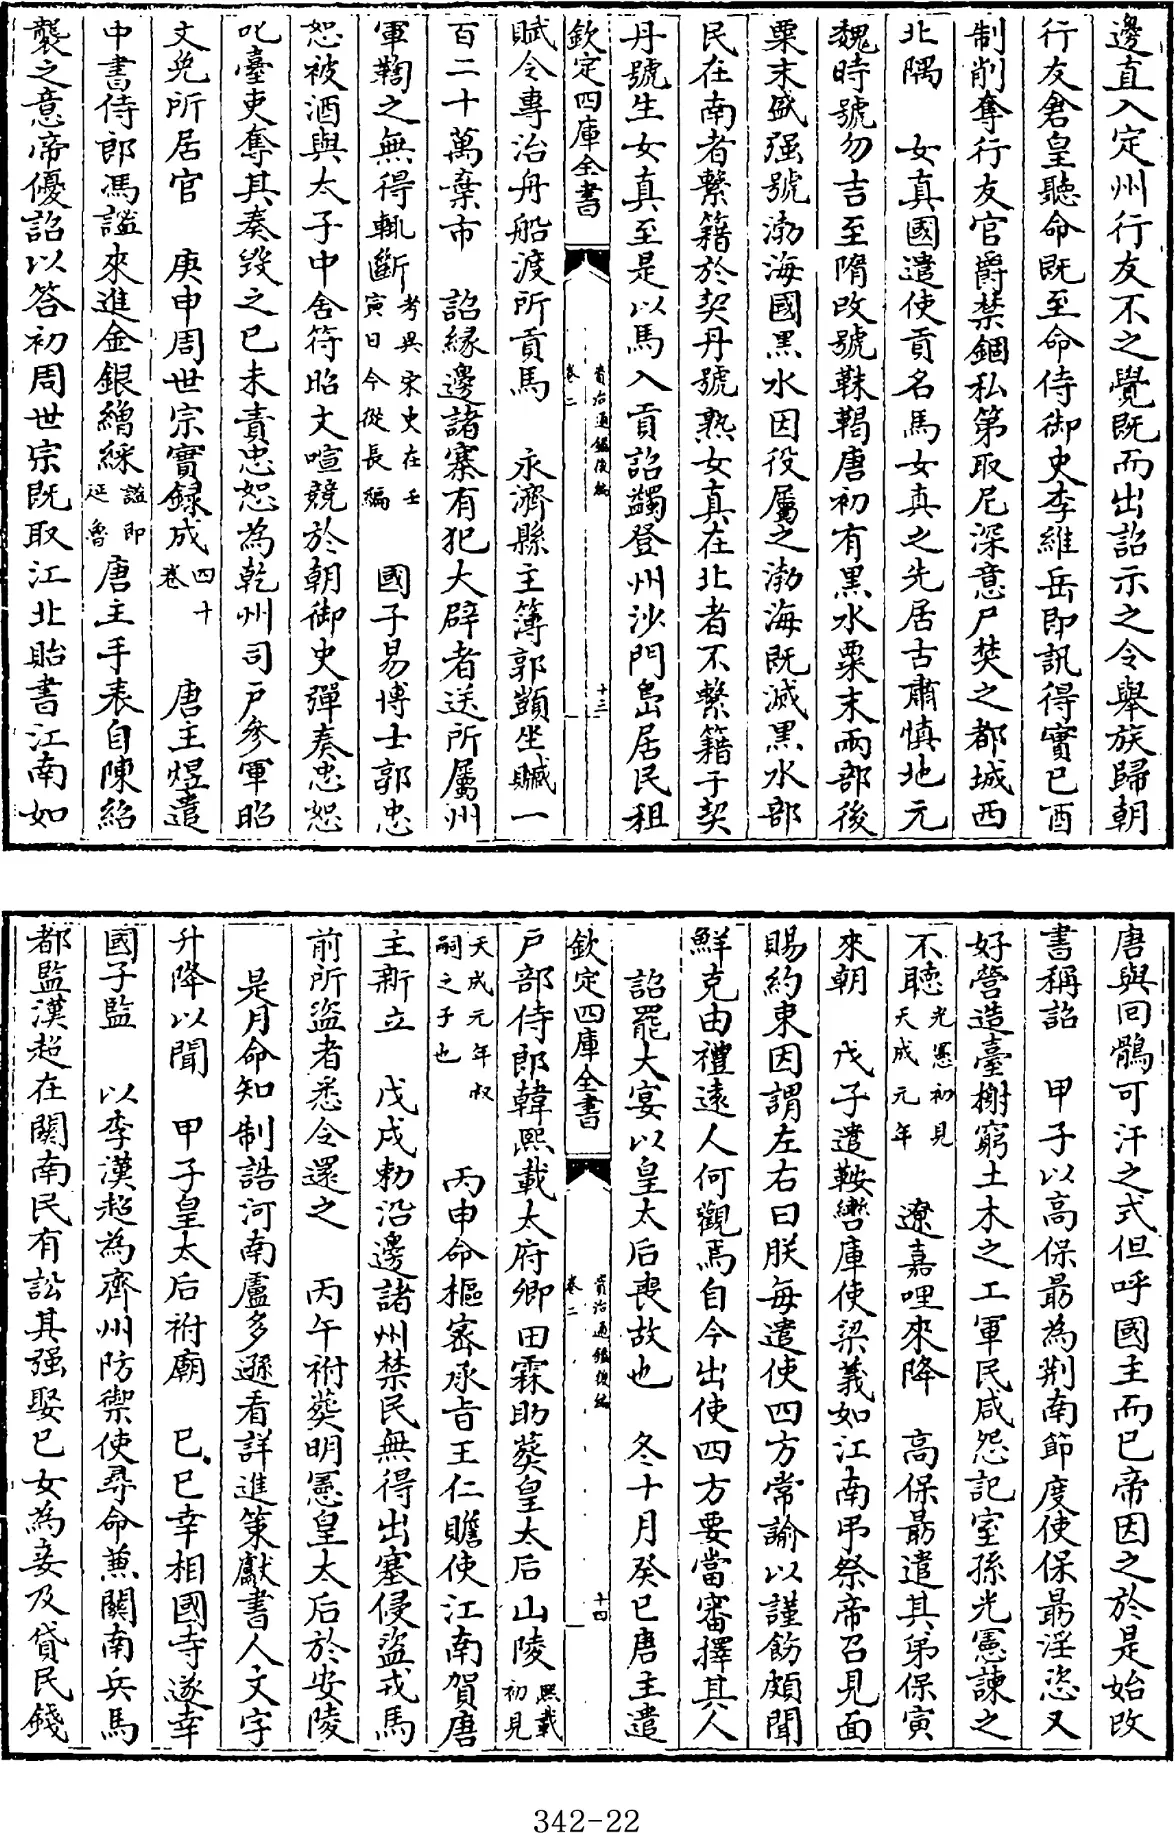 邊直入定州行友不之覺既而出詔示之令舉族歸朝
行友倉皇聽命既至命侍御史李維岳即訊得實已酉
制削奪行友官爵禁錮私第取尼深意尸焚之都城西
北隅　女真國遣使貢名馬女真之先居古肅慎地元
魏時號勿吉至隋改號靺鞨唐初有黑水粟末兩部後
粟末盛强號渤海國黑水因役屬之渤海既滅黑水部
民在南者繫籍於契丹號熟女真在北者不繫籍于契
丹號生女真至是以馬入貢詔蠲登州沙門島居民租
欽定四庫全書　資治通鑑後編卷二　十三
賦令專治舟船渡所貢馬　永濟縣主簿郭顗坐贓一
百二十萬棄市　詔緣邊諸寨有犯大辟者送所屬州
軍鞫之無得輒斷考異宋史在壬寅日今從長編　國子易博士郭忠
恕被酒與太子中舍符昭文喧競於朝御史彈奏忠恕
叱臺吏奪其奏毀之已未責忠恕為乾州司戶參軍昭
文免所居官　庚申周世宗實録成四十卷　唐主煜遣
中書侍郎馮謐來進金銀繒綵謐即延魯　唐主手表自陳紹
襲之意帝優詔以答初周世宗既取江北貽書江南如
唐與回鶻可汗之式但呼國主而已帝因之於是始改
書稱詔　甲子以高保朂為荆南節度使保朂淫恣又
好營造臺榭窮土木之工軍民咸怨記室孫光憲諫之
不聽光憲初見天成元年　遼嘉哩來降　高保朂遣其弟保寅
來朝　戊子遣鞍轡庫使梁義如江南弔祭帝召見面
賜約束因謂左右曰朕每遣使四方常諭以謹飭頗聞
鮮克由禮遠人何觀焉自今出使四方要當審擇其人
詔罷大宴以皇太后喪故也　冬十月癸巳唐主遣
欽定四庫全書　資治通鑑後編卷二　十四
戶部侍郎韓熙載太府卿田霖助葬皇太后山陵熙載初見
天成元年叔嗣之子也　丙申命樞密承旨王仁贍使江南賀唐
主新立　戊戌勅沿邊諸州禁民無得出塞侵盜戎馬
前所盜者悉令還之　丙午祔葬明憲皇太后於安陵
是月命知制誥河南盧多遜看詳進策獻書人文字
升降以聞　甲子皇太后祔廟　已巳幸相國寺遂幸
國子監　以李漢超為齊州防禦使尋命兼關南兵馬
都監漢超在關南民有訟其强娶已女為妾及貸民錢
342-22